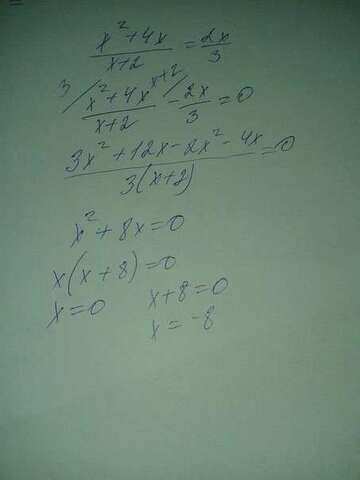 (x²+4x)/(x+2) = 2x/3
3/ (x²+4x)/(x+2) x+2/ - 2x/3 = 0
(3x²+12x-2x²-4x)/(3(x+2)) = 0
x²+8x=0
x(x+8)=0
x=0 x+8=0
x=-8